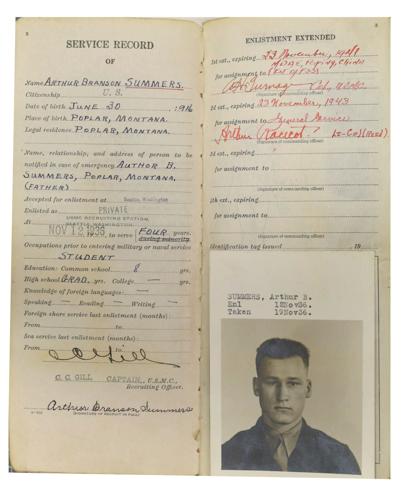 SERVICE RECORD
OF
Name ARTHUR BRANSON SUMMERS.
Citizenship U. S.
Date of birth JUNE 30, 1916
Place of birth POPLAR, MONTANA.
Legal residence POPLAR, MONTANA.
Name, relationship, and address of person to be
notified in case of emergency AUTHOR B.
SUMMERS, POPLAR, MONTANA,
(FATHER)
Accepted for enlistment at Seattle, Washington
Enlisted as PRIVATE
USMC RECRUITING STATION,
At SEATTLE, WASHINGTON
NOV 12 1936, to serve FOUR years.
during minority
Occupations prior to entering military or naval service
STUDENT
Education: Common school 8 yrs.
High school GRAD. yrs. College — yrs.
Knowledge of foreign languages: —
Speaking — Reading — Writing —
Foreign shore service last enlistment (months):
From to
Sea service last enlistment (months):
From to
C C Gill
C. C. GILL CAPTAIN, U.S.M.C.,
Recruiting Officer.
Arthur Branson Summers
(SIGNATURE OF RECRUIT IN FULL)
ENLISTMENT EXTENDED
1st ext., expiring
for assignment to
(Signature of commanding officer)
1st ext., expiring 23 November, 1943
for assignment to General Service
Lt-Col
(Signature of commanding officer)
ext., expiring
for assignment to
(Signature of commanding officer)
ext., expiring
for assignment to
(Signature of commanding officer)
Identification tag issued , 19
SUMMERS, Arthur B.
Enl 12Nov36.
Taken 19Nov36.